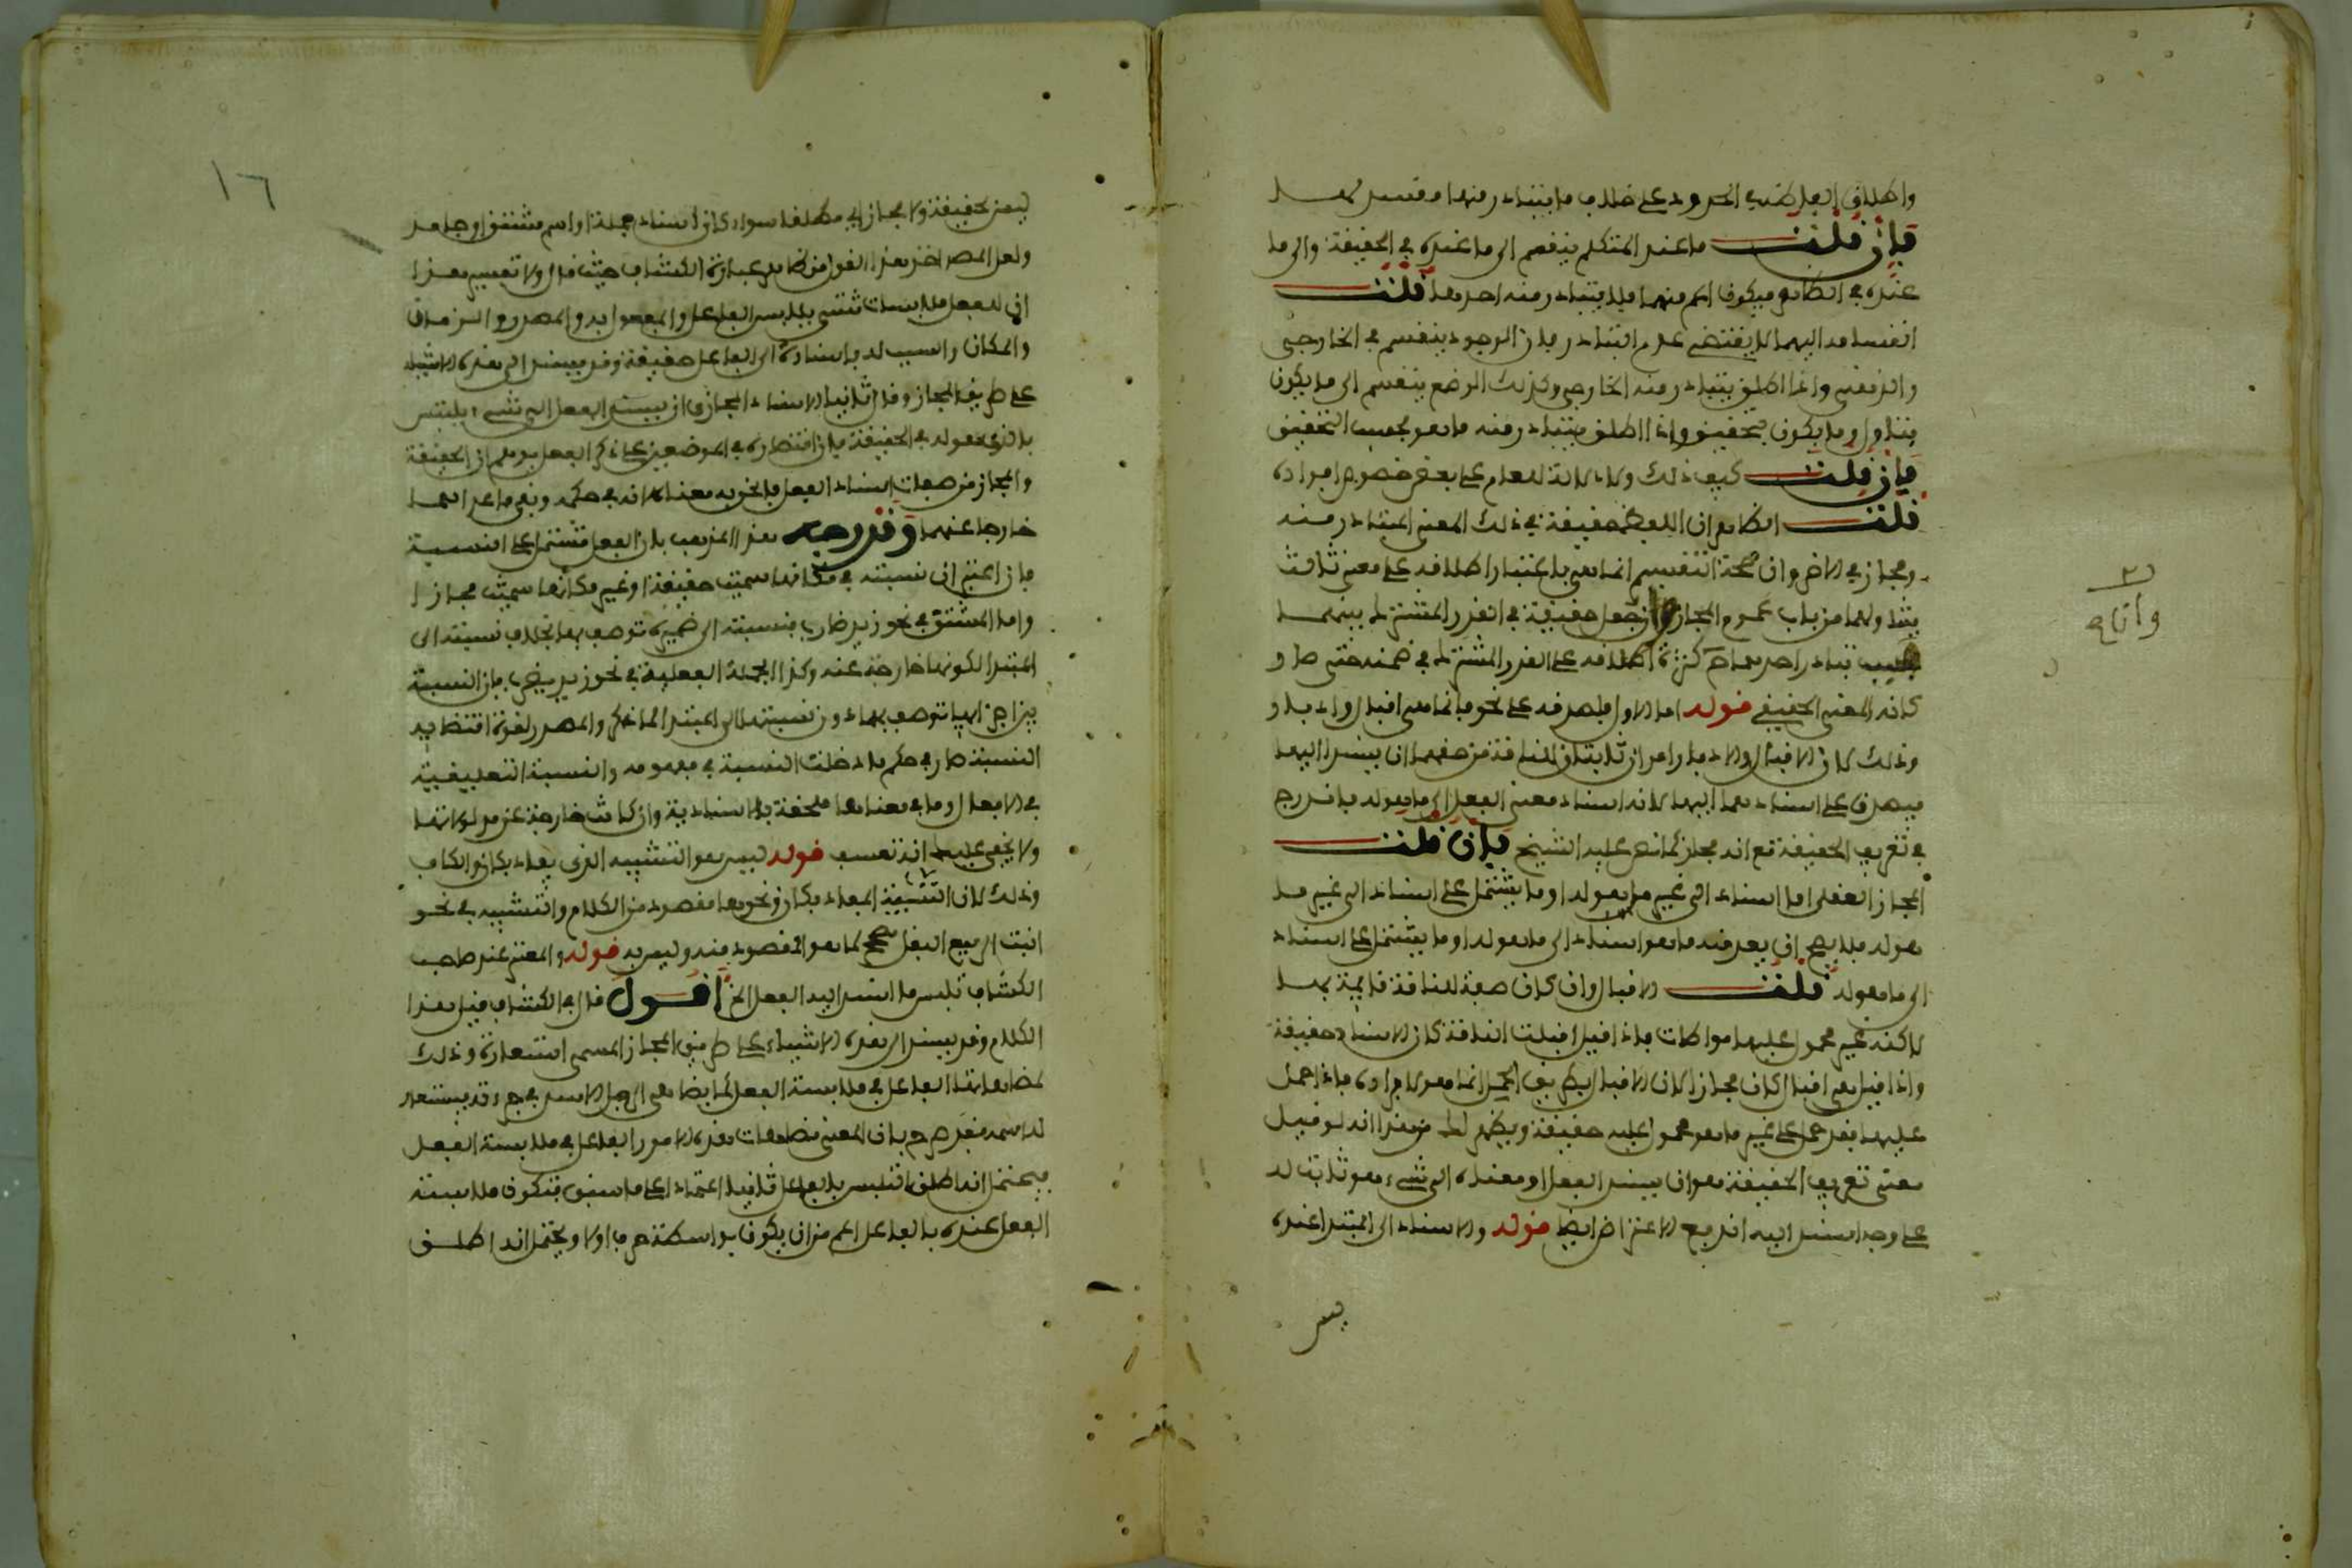 واطلاق الفعل على الحدود على خلاف ما يتبادر منها مفسد لها
فإن قلت ما عند المتكلم ينقسم الى ما عنده في الحقيقة والى ما
عنده في الظاهر فيكون اعم منهما فلا يتبادر منه احدهما قلت
انقسامه اليهما لا يقتضي عدم التبادر فإن الوجود ينقسم الى الخارجي
والذهني واذا اطلق يتبادر منه الخارجي وكذلك الوضع ينقسم الى ما يكون
بتاول وما يكون بتحقيق واذا اطلق يتبادر منه ما هو بحسب التحقيق
فإن قلت كيف ذلك ولا دلالة للعام على بعض خصوص افراده
قلت الظاهر ان اللفظ حقيقة في ذلك المعنى المتبادر منه
ومجاز في الاخر وان صحة التقسيم انما هي باعتبار اطلاقه على معنى ثالث
يتناولهما من باب عموم المجاز او تجعل حقيقة في القدر المشترك بينهما
وسبب تبادر احدهما كثرة اطلاقه على القدر المشترك في ضمنه حتى صار
كانه المعنى الحقيقي قوله اما الاول فلصدقه على نحو فانما هي اقبال وادبار
وذلك لان الاقبال والادبار امران ثابتان للناقة من حقهما ان يسندا اليها
فيصدق على اسنادهما اليها لانه اسناد معنى الفعل الى ما هو له فاندرج
في تعريف الحقيقة مع انه مجاز كما نص عليه الشيخ فإن قلت
المجاز العقلي اما اسناد الى غير ما هو له او ما يشتمل على اسناد الى غير ما
هو له فلا يصح ان يعد منه ما هو اسناد الى ما هو له او ما يشتمل على اسناد
الى ما هو له قلت الاقبال وان كان صفة للناقة قائمة بها
لاكنه غير محمول عليها مواطات فاذا قيل اقبلت الناقة كان الاسناد حقيقة
واذا قيل هي اقبال كان مجازا لان الاقبال بطريق الحمل انما هو لافراده فاذا حمل
عليها فقد حمل على غير ما هو محمول عليه حقيقة ويظهر لك من هذا انه لو قيل
معنى تعريف الحقيقة هو ان يسند الفعل او معناه الى شيء هو ثابت له
على وجه اسند اليه اندفع الاعتراض ايضا قوله والاسناد الى المبتدا عنده
ليس
وانما هي
١٦
ليس بحقيقة ولا مجاز اي مطلقا سواء كان المسند جملة او اسم مشتق او جامد
ولعل المص اخذ هذا القول من ظاهر عبارة الكشاف حيث قال اولا تفسير هذا
ان للفعل ملابسات شتى يلابس الفاعل والمفعول به والمصدر والزمان
والمكان والسبب له فاسناده الى الفاعل حقيقة وقد يسند الى هذه الاشياء
على طريق المجاز وقال ثانيا الاسناد المجازي ان يسند الفعل الى شيء يلتبس
بالذي هو له في الحقيقة فان اقتصاره في الموضعين على ذكر الفعل يوهم ان الحقيقة
والمجاز من صفات اسناد الفعل فالحق به معناه لانه في حكمه وبقي ما عداهما
خارجا عنهما وقد وجه هذا المذهب بان الفعل مشتمل على النسبة
فان اعتبر ان نسبته في مكانها سميت حقيقة او غير مكانها سميت مجازا
واما المشتق في نحو زيد ضارب فنسبته الى ضميره توصف بهما بخلاف نسبته الى
المبتدا لكونها خارجة عنه وكذا الجملة الفعلية في نحو زيد يضرب فان النسبة
بين اجزائها توصف بهما دون نسبتها الى المبتدا لما ذكر والمصدر لقوة اقتضائه
النسبة صار في حكم ما دخلت النسبة في مفهومه والنسبة التعليقية
في الافعال وما في معناها ملحقة بالاسنادية وان كانت خارجة عن مدلولاتها
ولا يخفى عليك انه تعسف قوله ليس هو التشبيه الذي يفاد بكان والكاف
وذلك لان التشبيه المفاد بكان ونحوها مقصود من الكلام والتشبيه في نحو
انبت الربيع البقل مصحح لما هو المقصود منه وليس به قوله والمعتبر عند صاحب
الكشاف تلبس ما اسند اليه الفعل الخ اقول قال في الكشاف قبل هذا
الكلام وقد يسند الى هذه الاشياء على طريق المجاز المسمى استعارة وذلك
لمضاهاتها الفاعل في ملابسة الفعل كما يضاهي الرجل الاسد في جرءته فيستعار
له اسمه فقد صرح بان المعتبر مضاهات هذه الامور الفاعل في ملابسة الفعل
فيحتمل انه اطلق التلبس بالفاعل ثانيا اعتمادا على ما سبق فتكون ملابسته
الفعل عنده بالفاعل اعم من ان يكون بواسطة حرف اولا ويحتمل انه اطلق